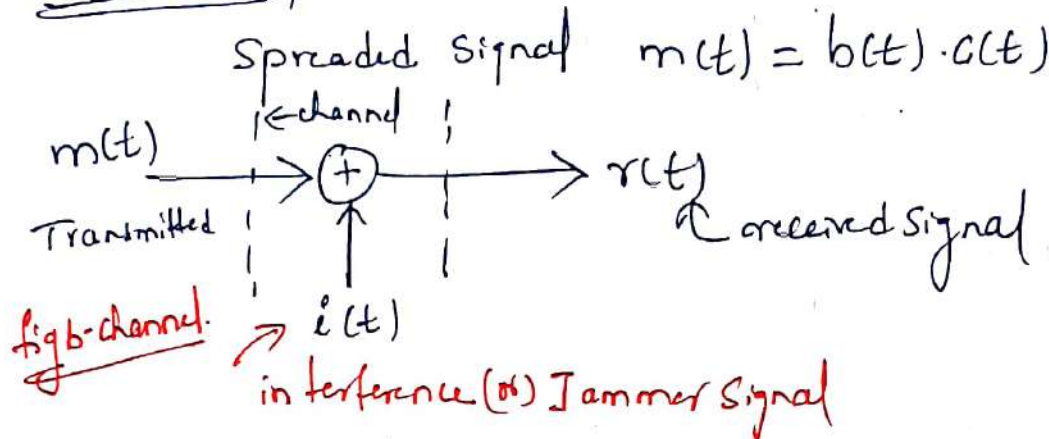 Spreaded Signal m(t) = b(t).c(t)
channel
m(t)
+
r(t)
Transmitted
received signal
i(t)
fig b-channel.
interference (or) Jammer Signal